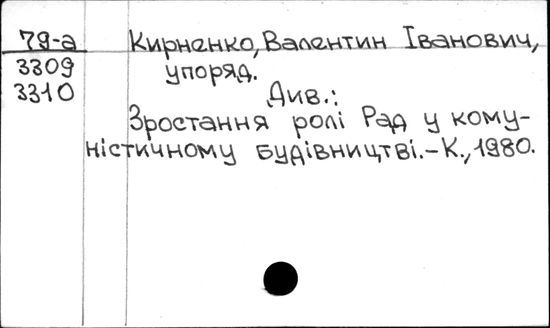 79-а Кирненко, Валентин Іванович,
3309 упоряд.
3310 Див.:
Зростання ролі Рад у кому-
ністичному будівництві.-К.,1980.